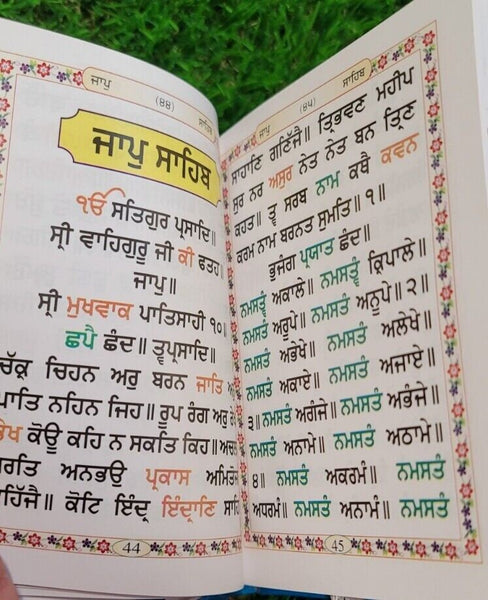 ਜਾਪੁ (੪੪) ਸਾਹਿਬ
ਜਾਪੁ ਸਾਹਿਬ
ੴ ਸਤਿਗੁਰ ਪ੍ਰਸਾਦਿ॥
ਸ੍ਰੀ ਵਾਹਿਗੁਰੂ ਜੀ ਕੀ ਫਤਹ
ਜਾਪੁ॥
ਸ੍ਰੀ ਮੁਖਵਾਕ ਪਾਤਿਸਾਹੀ ੧੦॥
ਛਪੈ ਛੰਦ॥ ਤ੍ਵਪ੍ਰਸਾਦਿ॥
ਚੱਕ੍ਰ ਚਿਹਨ ਅਰੁ ਬਰਨ ਜਾਤਿ
ਪਾਤਿ ਨਹਿਨ ਜਿਹ॥ ਰੂਪ ਰੰਗ ਅਰੁ
ਕੋਊ ਕਹਿ ਨ ਸਕਤਿ ਕਿਹ॥
ਅਨਭਉ ਪ੍ਰਕਾਸ
ਕੋਟਿ ਇੰਦ੍ਰ ਇੰਦ੍ਰਾਣਿ
44
ਜਾਪੁ (੪੫) ਸਾਹਿਬ
ਸਾਹਾਣਿ ਗਣਿੱਜੈ॥ ਤ੍ਰਿਭਵਣ ਮਹੀਪ
ਸੁਰ ਨਰ ਅਸੁਰ ਨੇਤ ਨੇਤ ਬਨ ਤ੍ਰਿਣ
ਕਹਤ॥ ਤ੍ਵ ਸਰਬ ਨਾਮ ਕਥੈ ਕਵਨ
ਕਰਮ ਨਾਮ ਬਰਨਤ ਸੁਮਤਿ॥੧॥
ਭੁਜੰਗ ਪ੍ਰਯਾਤ ਛੰਦ॥
ਨਮਸਤ੍ਵੰ ਅਕਾਲੇ॥ ਨਮਸਤ੍ਵੰ ਕ੍ਰਿਪਾਲੇ॥
ਨਮਸਤੰ ਅਰੂਪੇ॥ ਨਮਸਤੰ ਅਨੂਪੇ॥੨॥
ਨਮਸਤੰ ਅਭੇਖੇ॥ ਨਮਸਤੰ ਅਲੇਖੇ॥
ਨਮਸਤੰ ਅਕਾਏ॥ ਨਮਸਤੰ ਅਜਾਏ॥
੩॥ ਨਮਸਤੰ ਅਗੰਜੇ॥ ਨਮਸਤੰ ਅਭੰਜੇ॥
ਨਮਸਤੰ ਅਨਾਮੇ॥ ਨਮਸਤੰ ਅਠਾਮੇ॥
੪॥ ਨਮਸਤੰ ਅਕਰਮੰ॥ ਨਮਸਤੰ
ਅਧਰਮੰ॥ ਨਮਸਤੰ ਅਨਾਮੰ॥ ਨਮਸਤੰ
45